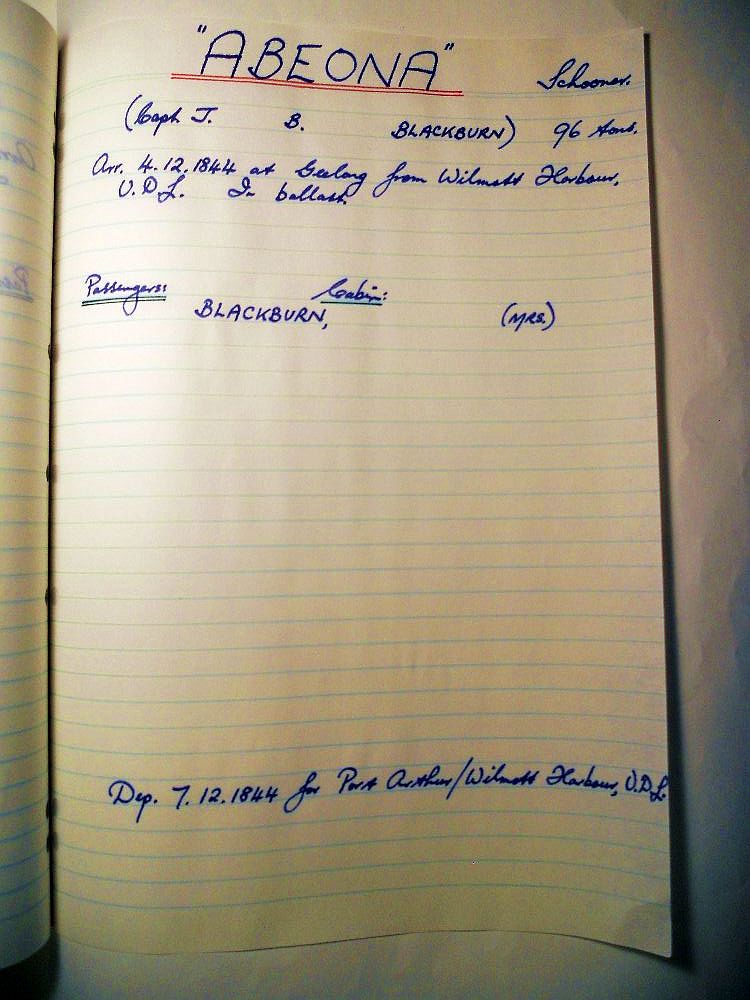 "ABEONA" Schooner.
(Capt J. B. BLACKBURN) 96 tons.
Arr. 4.12.1844 at Geelong from Wilmott Harbour,
V.D.L. In ballast.
Passengers: Cabin:
BLACKBURN, (MRS.)
Dep. 7.12.1844 for Port Arthur/Wilmott Harbour, V.D.L.